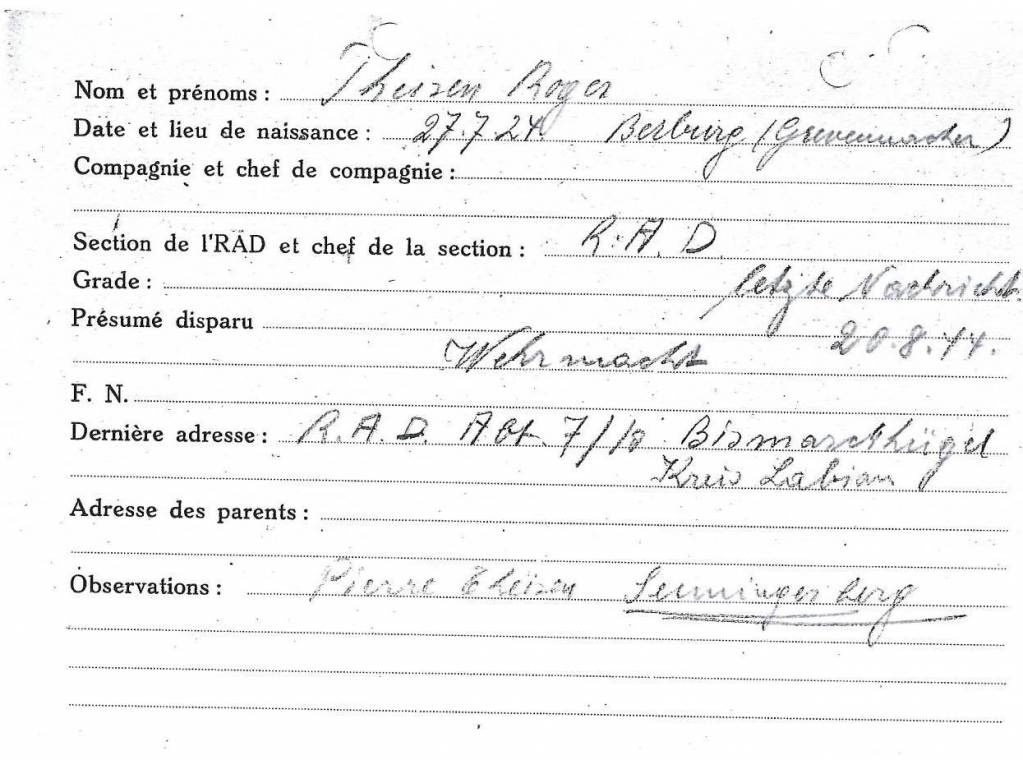 Nom et prénoms : Theisen Roger
Date et lieu de naissance : 27.7.24. Berburg (Grevenmacher)
Compagnie et chef de compagnie :
Section de l'RAD et chef de la section : R.A.D.
Grade : letzte Nachricht
Présumé disparu 20.8.44.
Wehrmacht
F. N.
Dernière adresse : R.A.D. Abt. 7/10 Bismarckhügel
Kreis Labiau
Adresse des parents :
Observations : Pierre Theisen Senningerberg